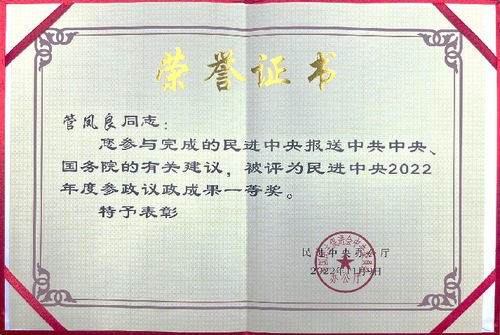 荣誉证书
管凤良同志：
您参与完成的民进中央报送中共中央、
国务院的有关建议，被评为民进中央2022
年度参政议政成果一等奖。
特予表彰
民进中央办公厅
2022年11月
办公厅